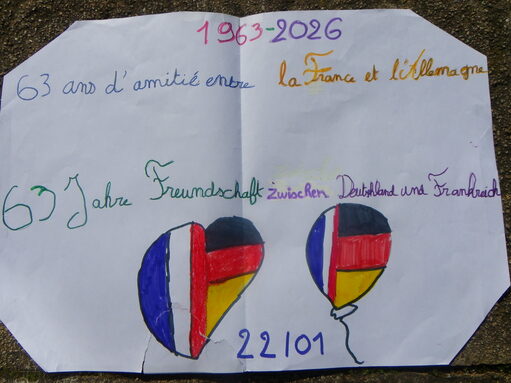 1963-2026
63 ans d'amitié entre la France et l'Allemagne
63 Jahre Freundschaft zwischen Deutschland und Frankreich
22/01